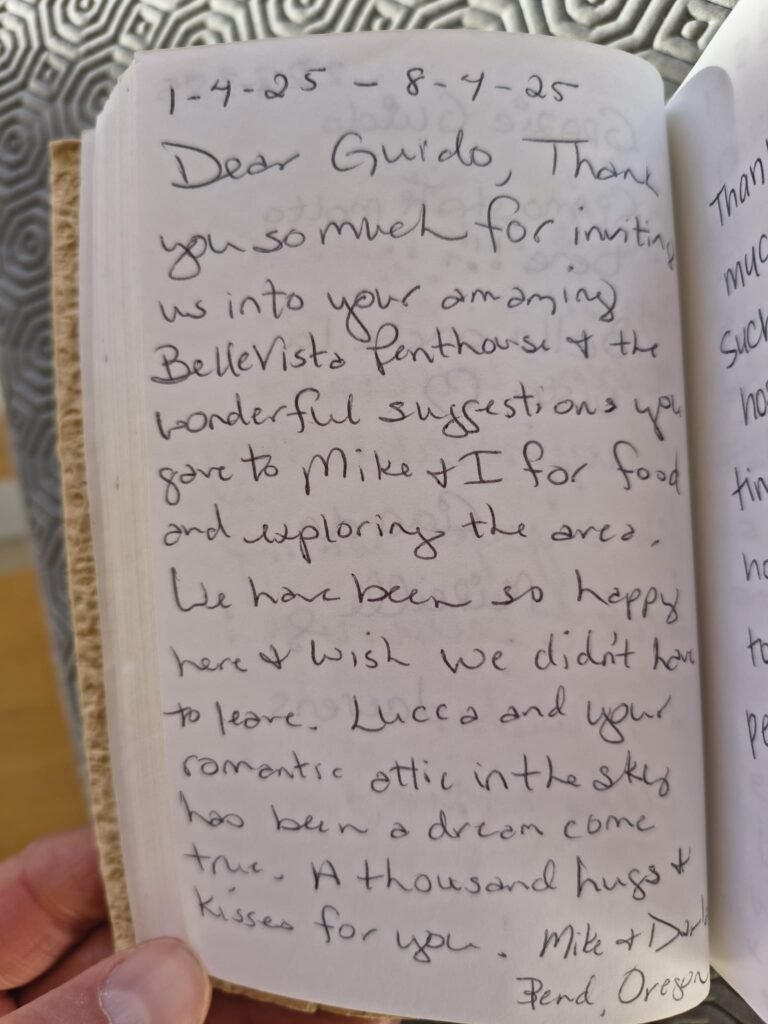 1-4-25 - 8-4-25
Dear Guido, Thank
you so much for inviting
us into your amazing
BelleVista Penthouse & the
wonderful suggestions you
gave to Mike & I for food
and exploring the area.
We have been so happy
here & wish we didn't have
to leave. Lucca and your
romantic attic in the sky
has been a dream come
true. A thousand hugs &
kisses for you. Mike &
Bend, Oregon